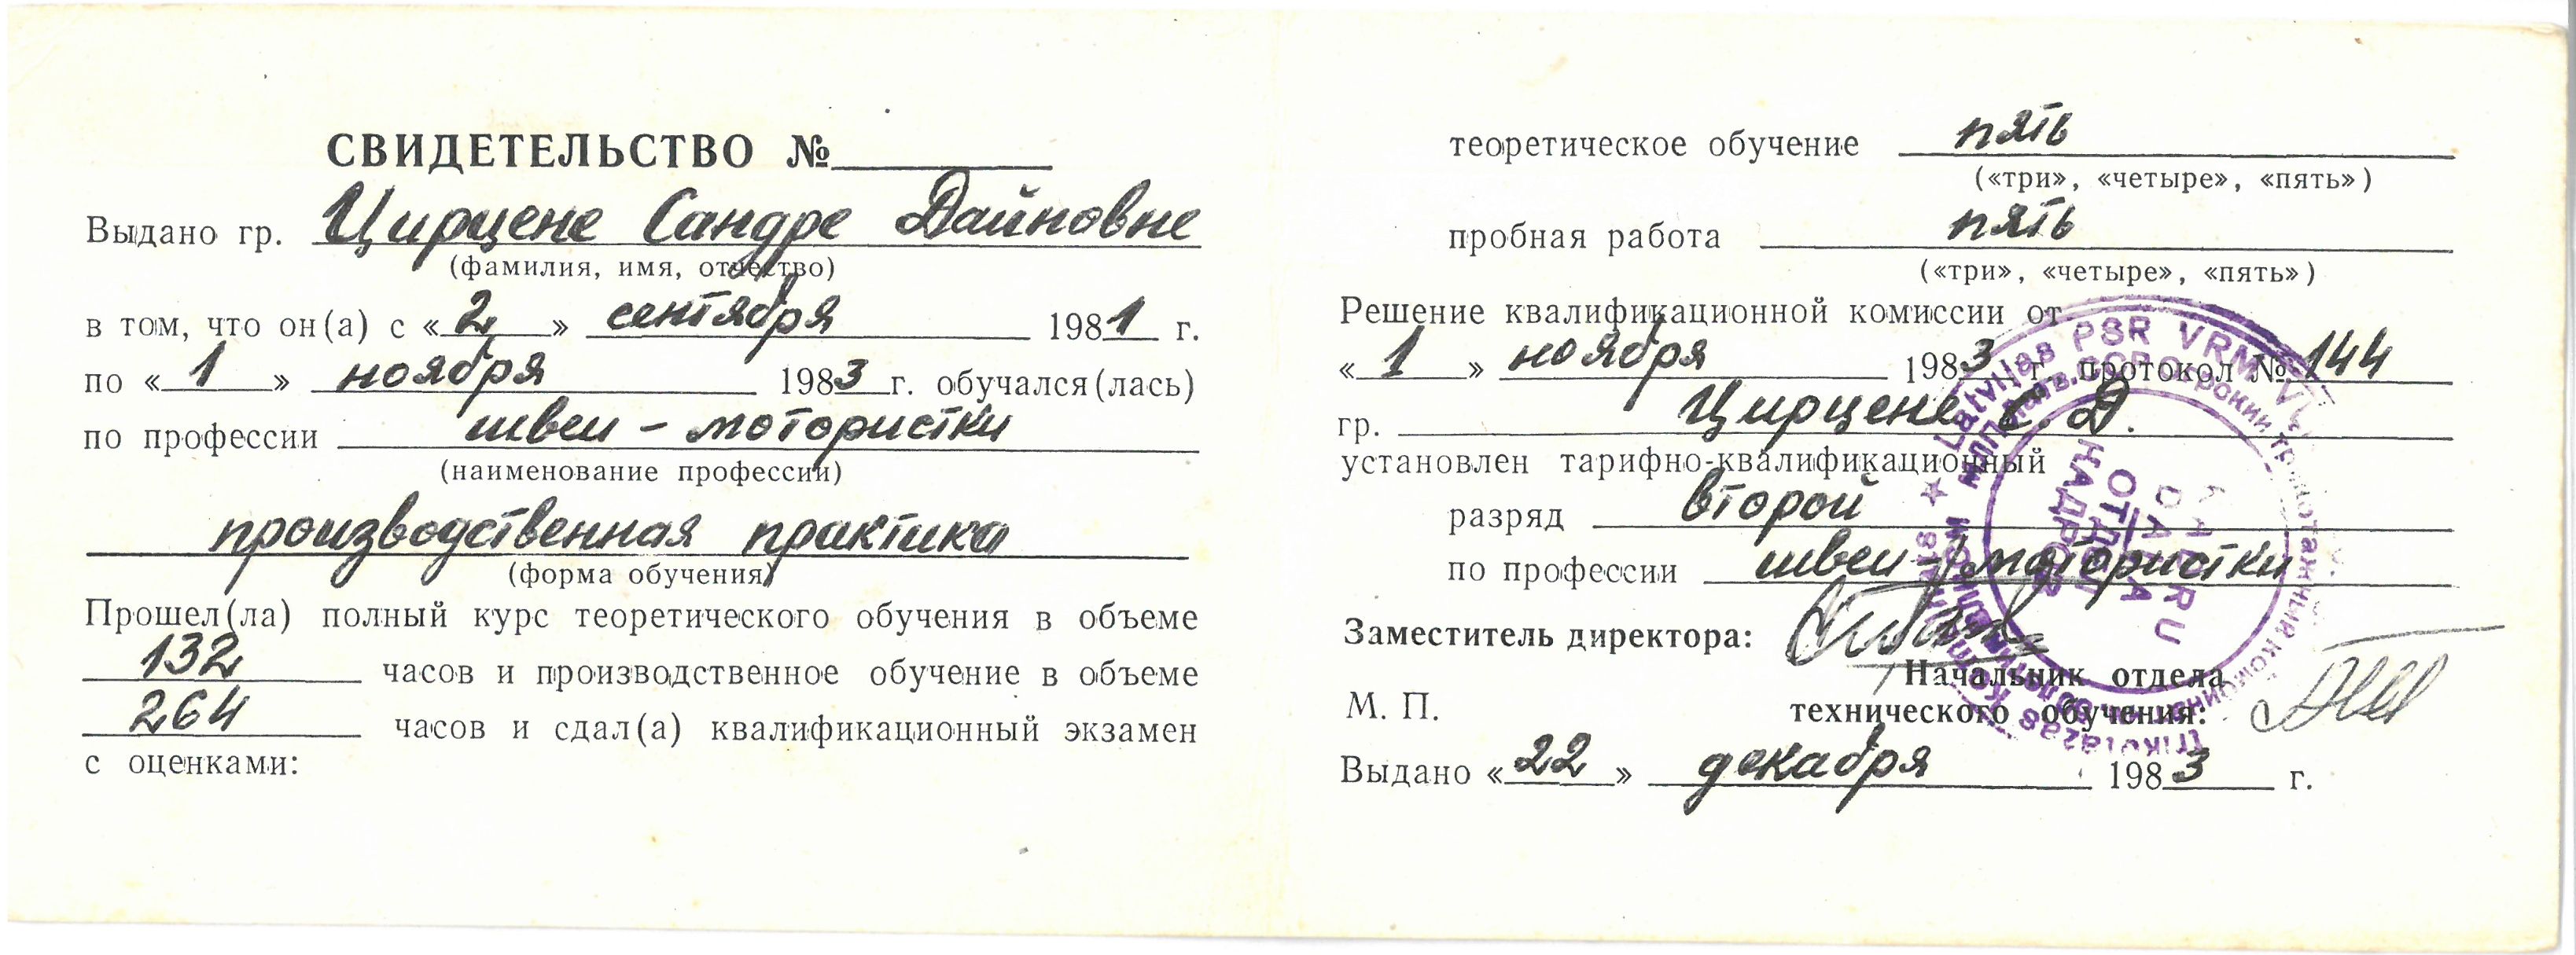 СВИДЕТЕЛЬСТВО №
Выдано гр. Цирцене Сандре Дайновне
(фамилия, имя, отчество)
в том, что он(а) с «2» сентября 1981 г.
по «1» ноября 1983 г. обучался(лась)
по профессии швеи - мотористки
(наименование профессии)
производственная практика
(форма обучения)
Прошел(ла) полный курс теоретического обучения в объеме
132 часов и производственное обучение в объеме
264 часов и сдал(а) квалификационный экзамен
с оценками:
теоретическое обучение пять
(«три», «четыре», «пять»)
пробная работа пять
(«три», «четыре», «пять»)
Решение квалификационной комиссии от
«1» ноября 1983 г. протокол № 144
гр. Цирцене С. Д.
установлен тарифно-квалификационный
разряд второй
по профессии швеи - мотористки
Заместитель директора:
М. П.
Начальник отдела
технического обучения:
Выдано «22» декабря 1983 г.
Latvijas PSR VRM
KADRU
DAĻA
ОТДЕЛ
КАДРОВ